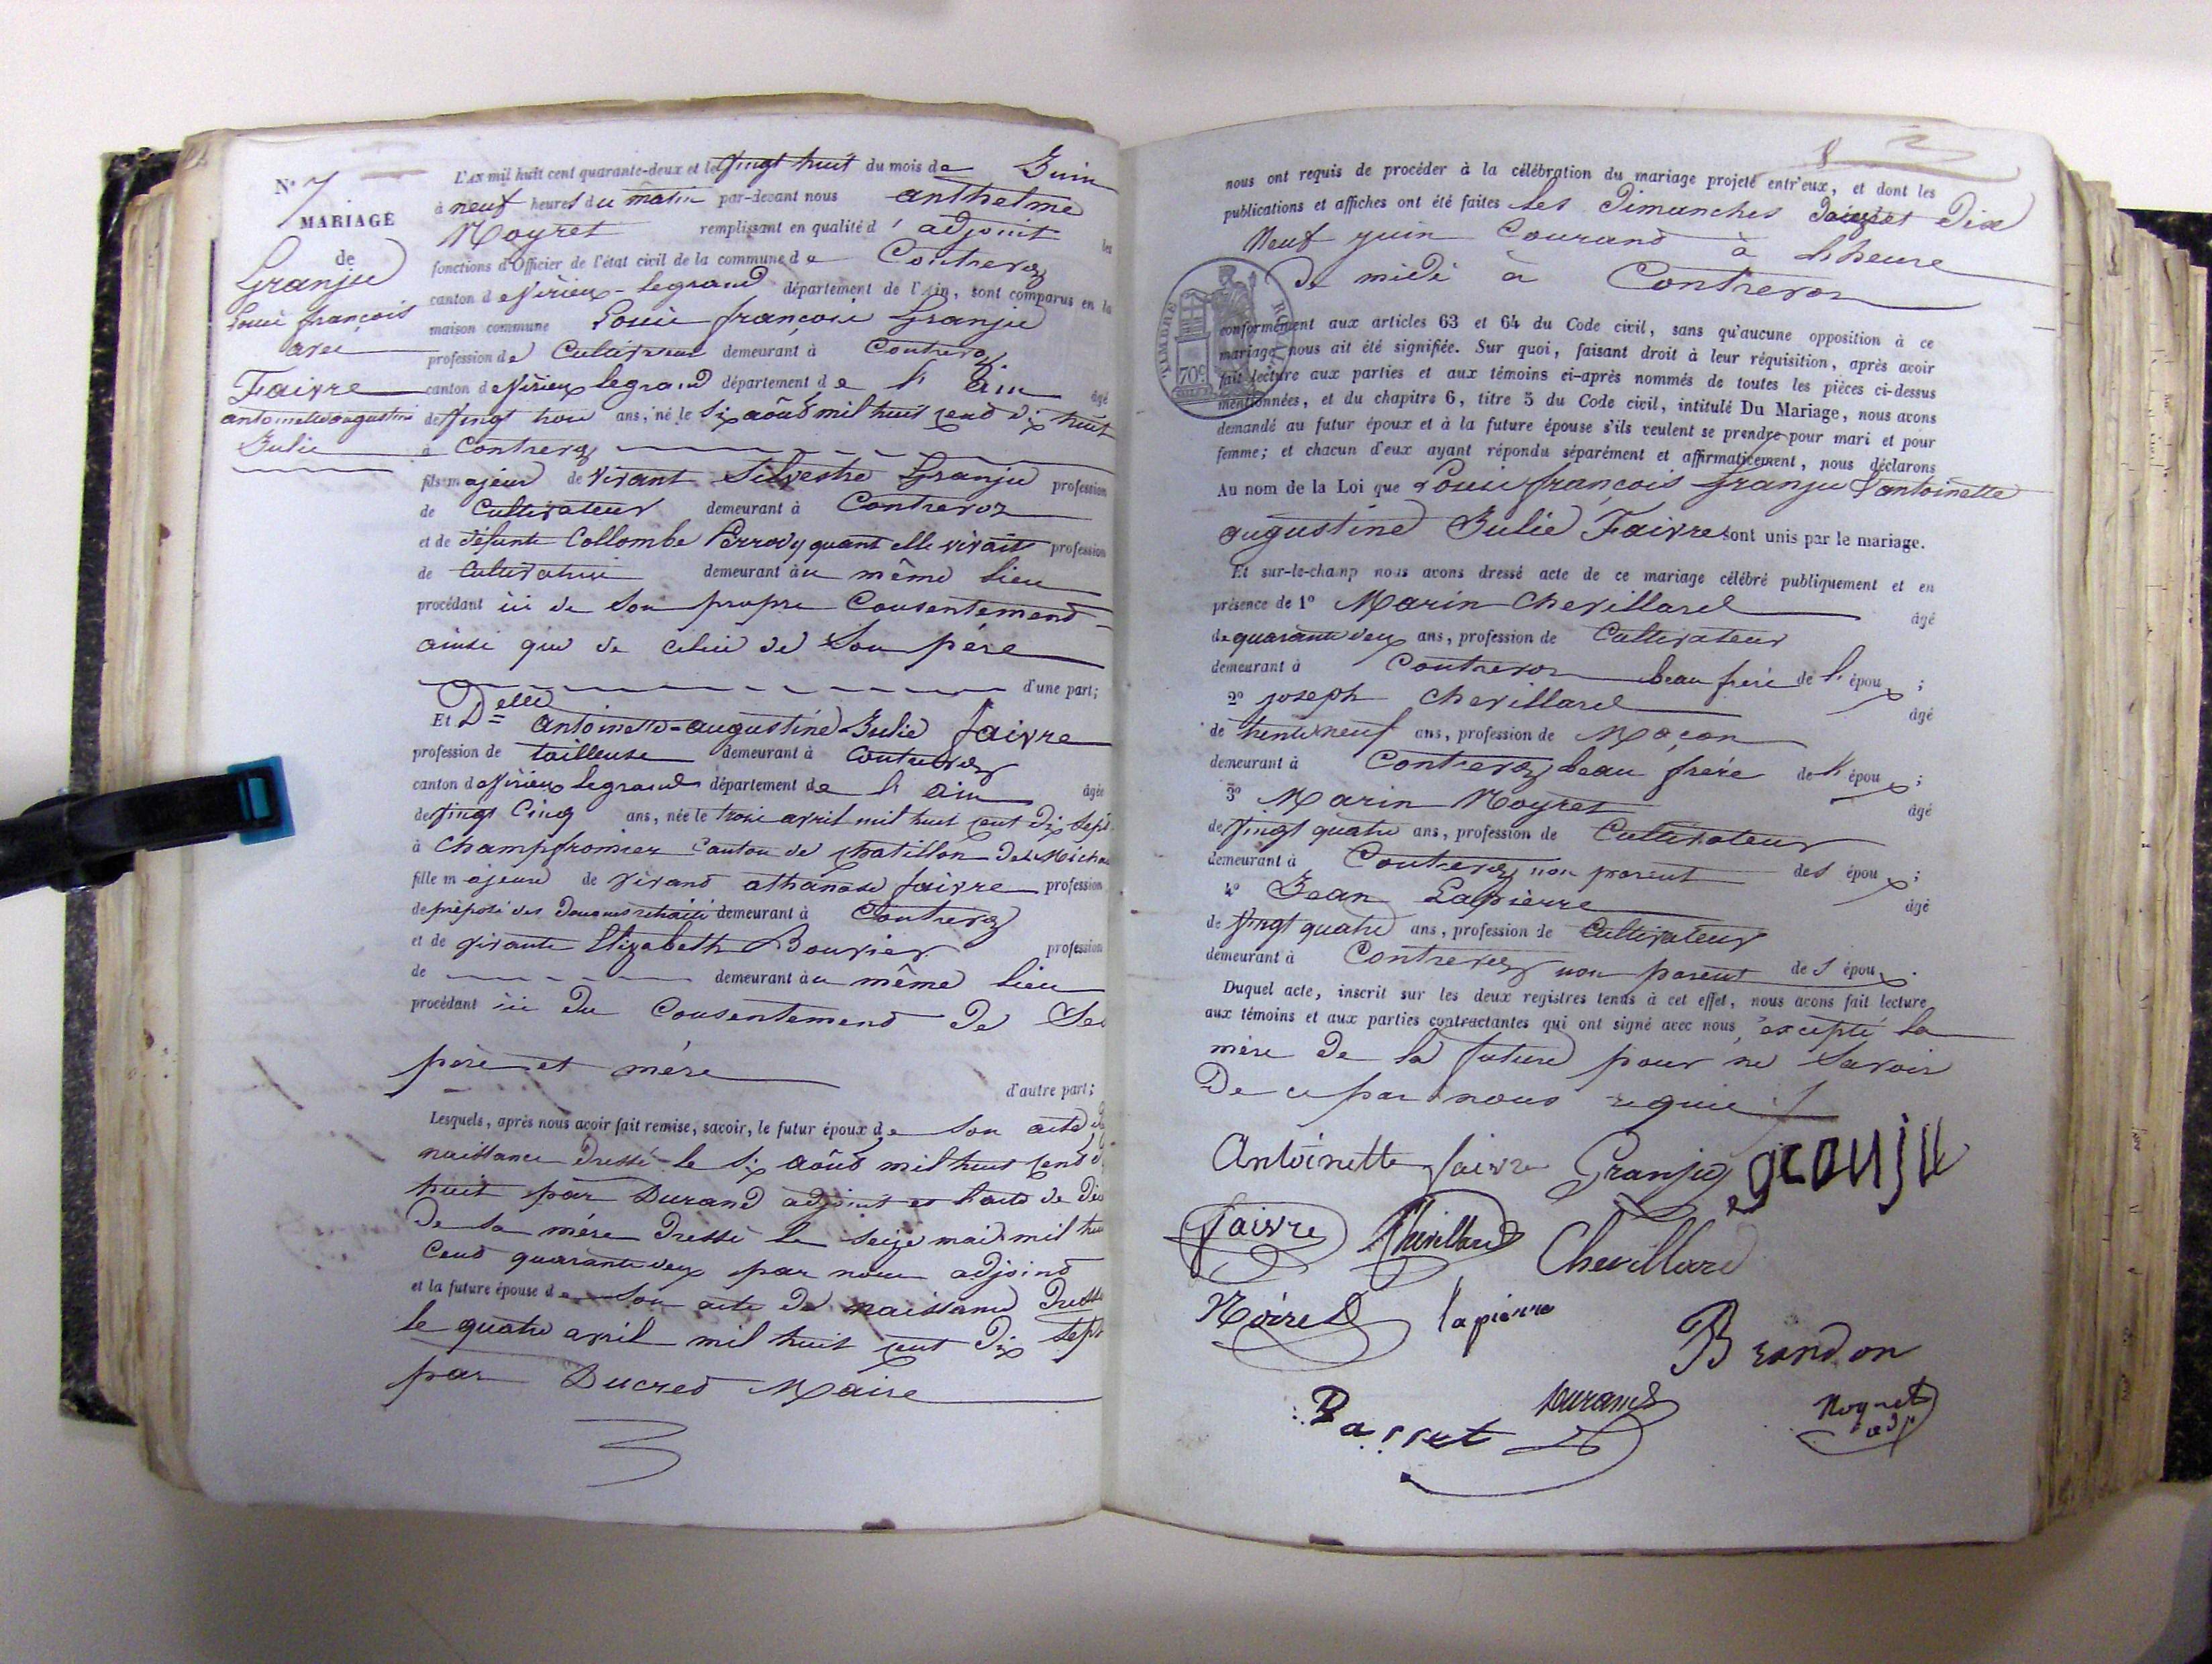 N° 7
MARIAGE
de
Granju
Louis françois
avec
Faivre
antoinette augustine
Julie
L'AN mil huit cent quarante-deux et le vingt huit du mois de Juin
à neuf heures du matin par-devant nous anthelme
Moyret remplissant en qualité d'adjoint les
fonctions d'Officier de l'état civil de la commune de Contrevoz
canton de Virieux-legrand département de l'Ain, sont comparus en la
maison commune Louis françois Granju
profession de Cultivateur demeurant à Contrevoz
canton de Virieux legrand département de l'ain âgé
de vingt trois ans, né le six août mil huit cend dix huit
à Contrevoz
fils majeur de vivant Silvestre Granju profession
de Cultivateur demeurant à Contrevoz
et de défunte Collombe Perrody quant elle vivait profession
de Cultivatrice demeurant au même lieu
procédant ici de son propre Consentement
ainsi que de celui de son père
d'une part;
Et Delle antoinette-augustine-Julie faivre
profession de tailleuse demeurant à Contrevoz
canton de Virieux legrand département de l'ain âgée
de vingt Cinq ans, née le trois avril mil huit cent dix sept
à Champfromier Canton de chatillon De Micha
fille majeure de vivant athanase faivre profession
de préposé des Douanes retraité demeurant à Contrevoz
et de vivante Elizabeth Bouvier profession
de demeurant au même lieu
procédant ici du Consentement de Ses
père et mère
d'autre part;
Lesquels, après nous avoir fait remise, savoir, le futur époux de son acte de
naissance Dressé le six août mil huit cend
huit par Durand adjoint et l'acte de
De sa mère Dressé le seize mai mil
Cend quarante deux par nous adjoind
et la future épouse de son acte De naissance Dressé
le quatre avril mil huit cent Dix sept
par Ducred Maire
8
nous ont requis de procéder à la célébration du mariage projeté entr'eux, et dont les
publications et affiches ont été faites les Dimanches et Dix
Neuf juin Courand à lheure
De midi à Contrevoz
TIMBRE ROYAL
70c
conformément aux articles 63 et 64 du Code civil, sans qu'aucune opposition à ce
mariage nous ait été signifiée. Sur quoi, faisant droit à leur réquisition, après avoir
fait lecture aux parties et aux témoins ci-après nommés de toutes les pièces ci-dessus
mentionnées, et du chapitre 6, titre 5 du Code civil, intitulé Du Mariage, nous avons
demandé au futur époux et à la future épouse s'ils veulent se prendre pour mari et pour
femme; et chacun d'eux ayant répondu séparément et affirmativement, nous déclarons
Au nom de la Loi que Louis françois Granju & antoinette
augustine Julie Faivre sont unis par le mariage.
Et sur-le-champ nous avons dressé acte de ce mariage célébré publiquement et en
présence de 1° Marin Chevillard âgé
de quarante deux ans, profession de Cultivateur
demeurant à Contrevoz beau frère de l'époux;
2° joseph Chevillard âgé
de trente neuf ans, profession de Maçon
demeurant à Contrevoz beau frère de l'époux;
3° Marin Moyret âgé
de vingt quatre ans, profession de Cultivateur
demeurant à Contrevoz non parent des époux;
4° Jean Lapierre âgé
de vingt quatre ans, profession de Cultivateur
demeurant à Contrevoz non parent des époux.
Duquel acte, inscrit sur les deux registres tenus à cet effet, nous avons fait lecture
aux témoins et aux parties contractantes qui ont signé avec nous, excepté la
mère De la future pour ne savoir
De ce par nous requis
Antoinette faivre Granju granju
faivre Chevillard Chevillard
Moiret lapierre
Brandon
Barret Durand Moyret
adj